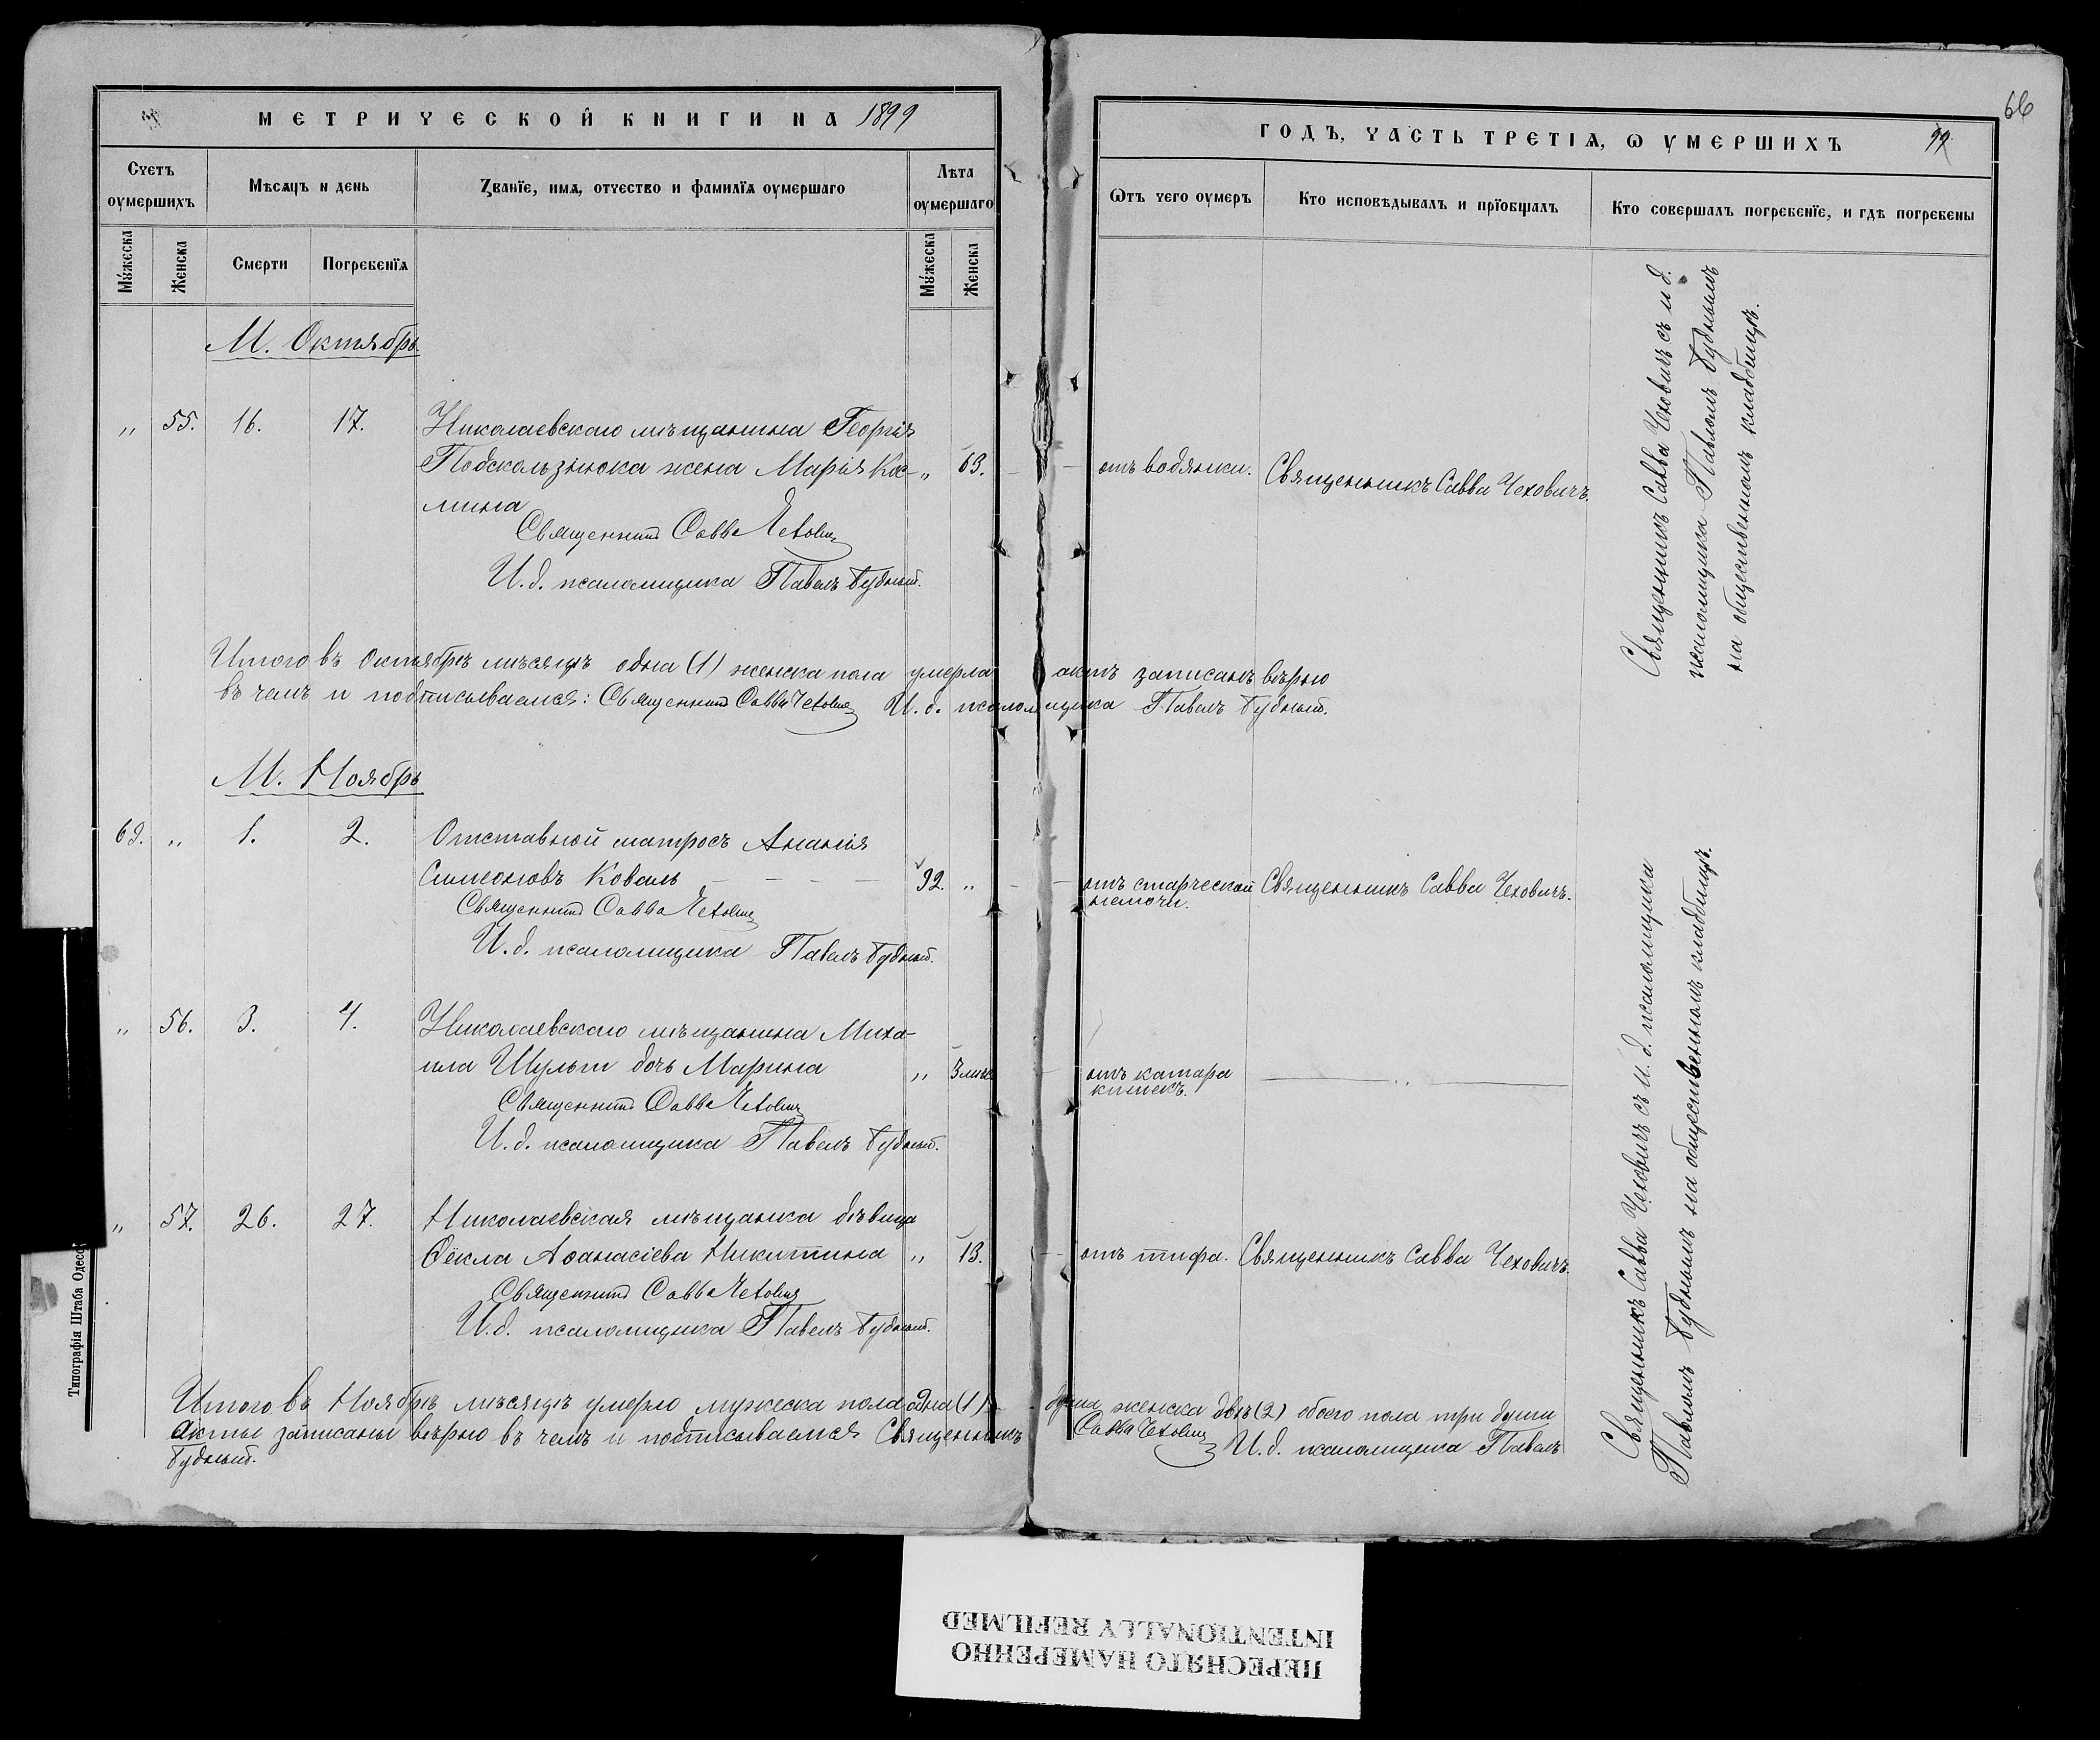 МЕТРИЧЕСКОЙ КНИГИ НА 1899
Счетъ оумершихъ
Мѣсяцъ и день
Званїе, имя, отчество и фамилїя оумершаго
Лѣта оумершаго
Мужеска
Женска
Смерти
Погребенїя
Мужеска
Женска
М. Октябрь
„ 55. 16. 17. Николаевскаго мѣщанина Георгія
Подскользнюка жена Марія Кос- „ 63.
мина
Священникъ Савва Чеховичъ
И. д. псаломщика Павелъ Будный.
Итого въ Октябрѣ мѣсяцѣ одна (1) женска пола умерла
въ чемъ и подписываемся: Священникъ Савва Чеховичъ И. д. псалом
М. Ноябрь
69. „ 1. 2. Отставной матросъ Ананія
Симеоновъ Коваль 92. „
Священникъ Савва Чеховичъ
И. д. псаломщика Павелъ Будный.
„ 56. 3. 4. Николаевскаго мѣщанина Миха-
ила Шульт дочь Марина „ 3 мѣс
Священникъ Савва Чеховичъ
И. д. псаломщика Павелъ Будный.
„ 57. 26. 27. Николаевская мѣщанка дѣвица
Ѳекла Аѳанасіева Никитина „ 13.
Священникъ Савва Чеховичъ
И. д. псаломщика Павелъ Будный.
Итого въ Ноябрѣ мѣсяцѣ умерло мужеска пола одна (1)
акты записаны вѣрно въ чемъ и подписываемся Священникъ
Будный.
Типографія Штаба Одесс
66
ГОДЪ, ЧАСТЬ ТРЕТІЯ, Ѡ УМЕРШИХЪ 99
Ѡтъ чего оумеръ
Кто исповѣдывалъ и прїобщалъ
Кто совершалъ погребенїе, и гдѣ погребены
отъ водянки. Священникъ Савва Чеховичъ.
Священникъ Савва Чеховичъ съ и. д.
псаломщика Павломъ Буднымъ
на общественномъ кладбищѣ.
актъ записанъ вѣрно
щика Павелъ Будный.
отъ старческой Священникъ Савва Чеховичъ.
немочи.
отъ катара „
кишекъ.
отъ тифа. Священникъ Савва Чеховичъ.
Священникъ Савва Чеховичъ съ и. д. псаломщика
Павломъ Буднымъ на общественномъ кладбищѣ.
душа женска двѣ (2) обоего пола три души
Савва Чеховичъ И. д. псаломщика Павелъ
ПЕРЕСНЯТО НАМЕРЕННО
INTENTIONALLY REFILMED